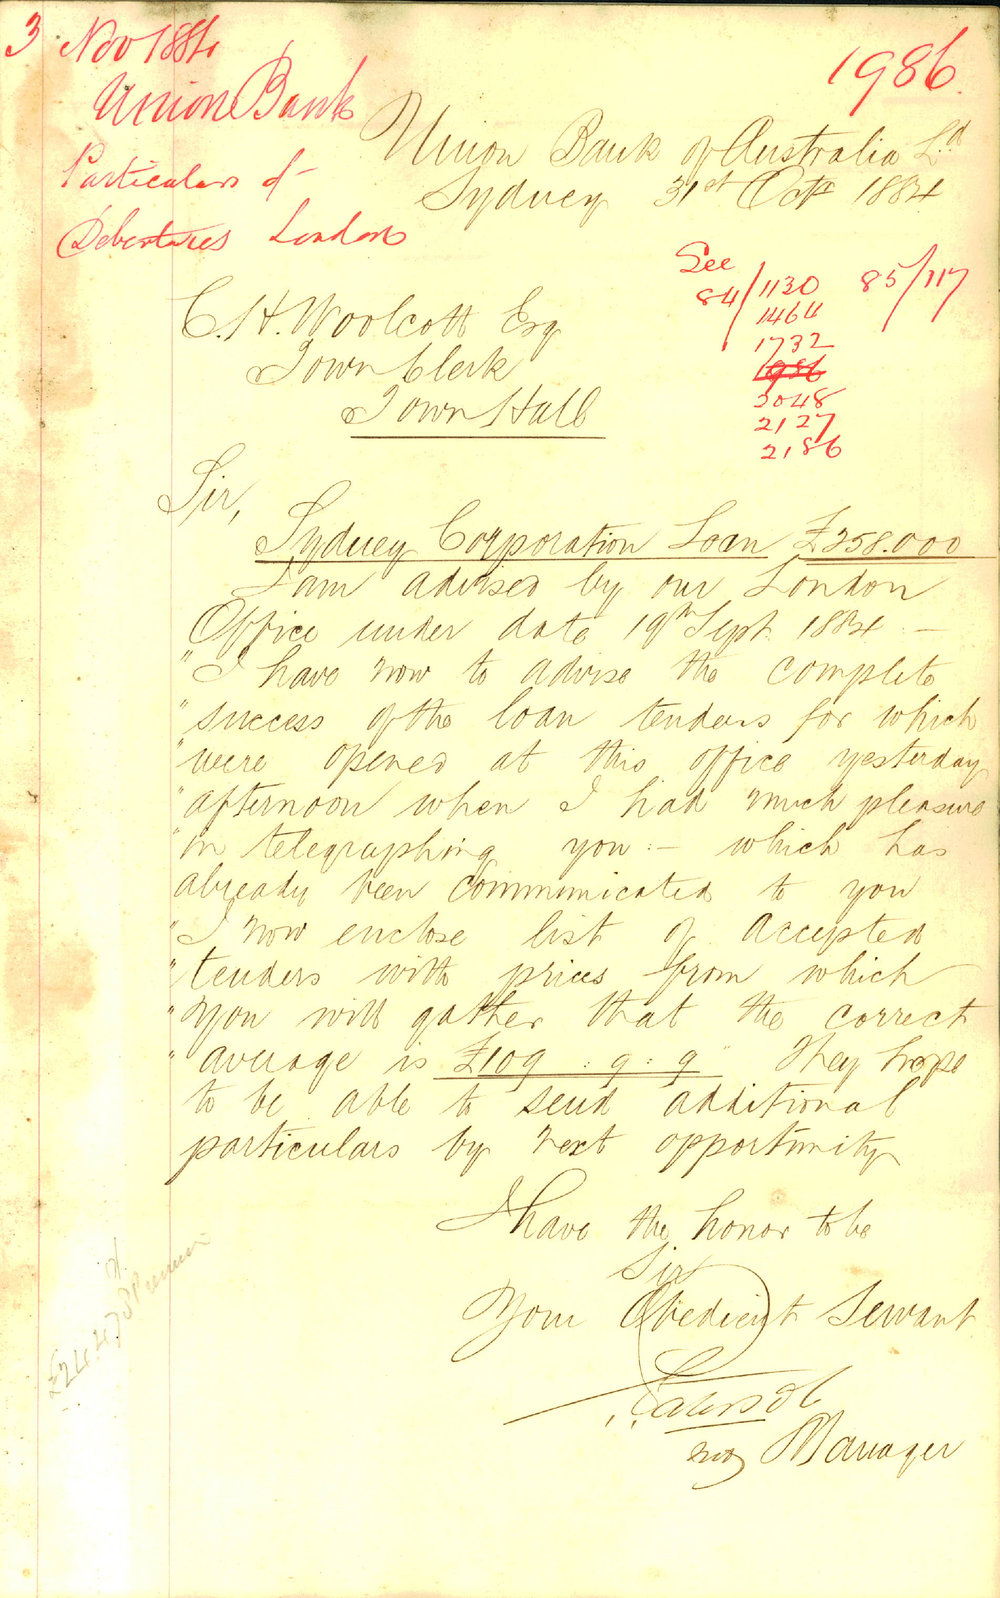 3 Nov 1884
Union Bank
Particulars of
Debentures London
1986.
Union Bank of Australia Ld
Sydney 31st Octr 1884
See
84/1130 85/117
1464
1732
1986
2127
2186
C. H. Woolcott Esq
Town Clerk
Town Hall
Sir,
Sydney Corporation Loan £258.000
I am advised by our London
Office under date 19th Sept. 1884 —
"I have now to advise the complete
"success of the loan tenders for which
"were opened at this office yesterday
"afternoon when I had much pleasure
"in telegraphing you :— which has
already been communicated to you
"I now enclose list of accepted
"tenders with prices from which
"you will gather that the correct
"average is £109 : 9 : 9" They hope
to be able to send additional
particulars by next opportunity
I have the honor to be
Sir
Your Obedient Servant
Manager